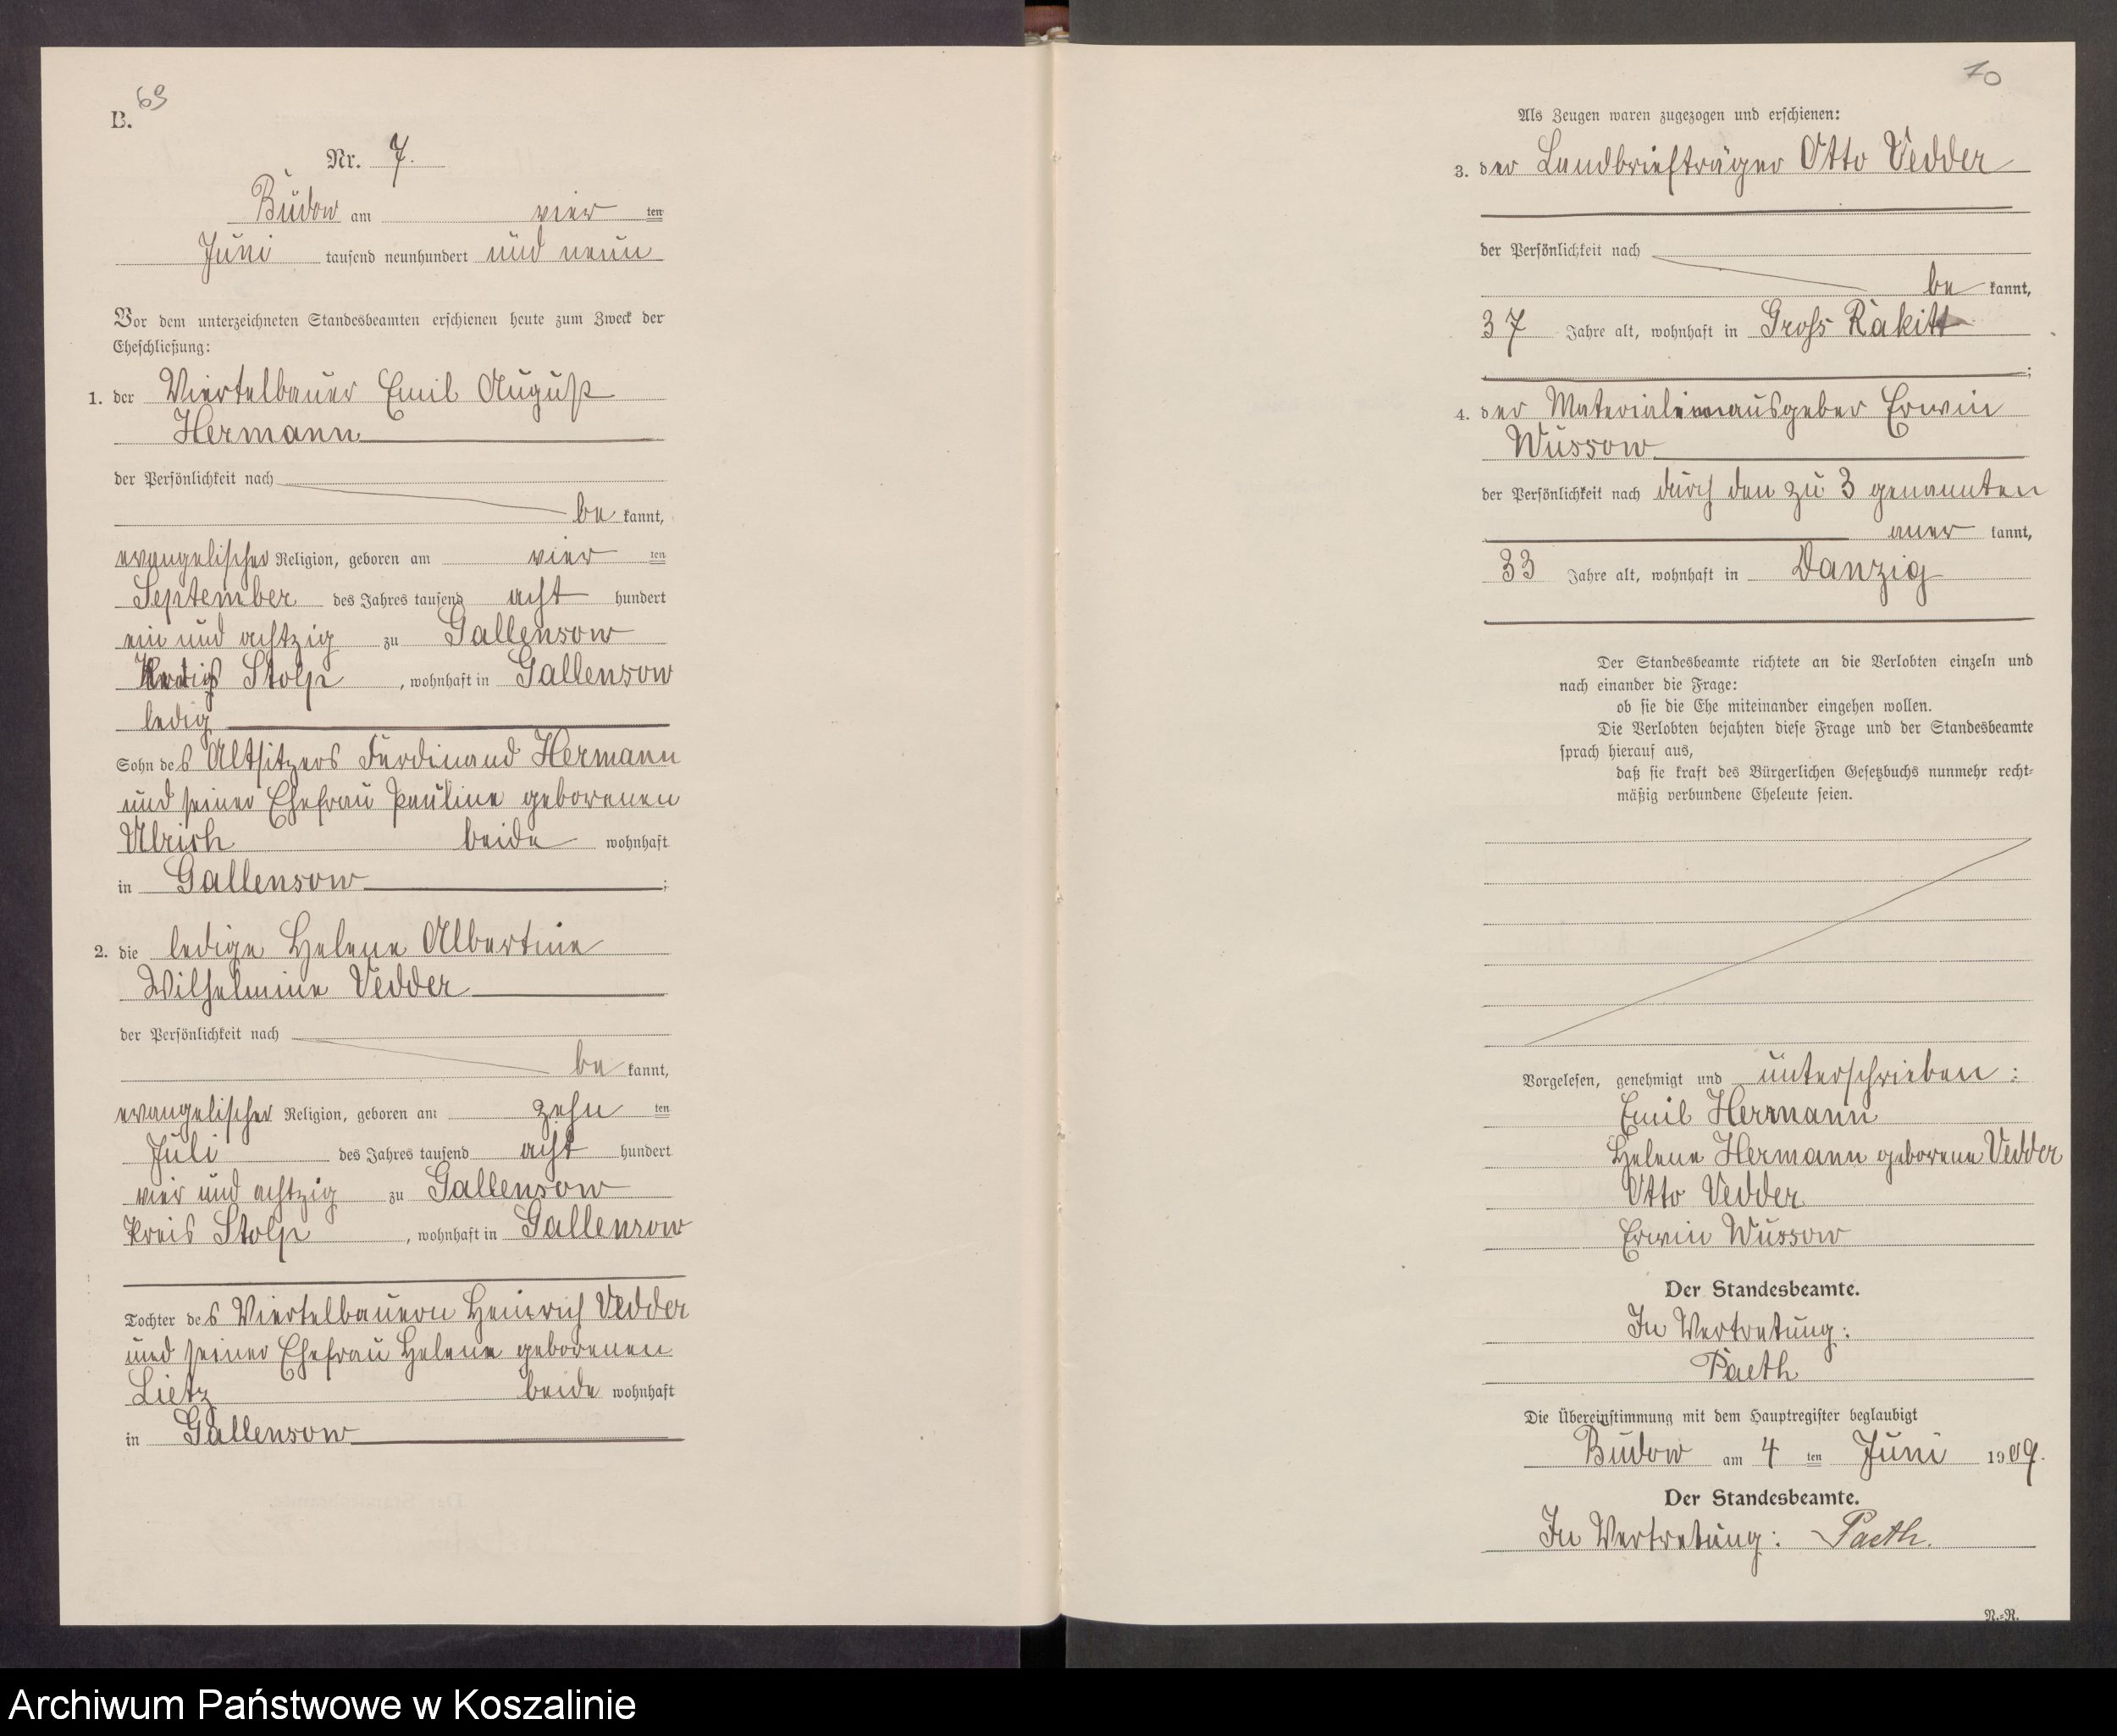 69
B.
Nr. 7.
Budow am vier ten
Juni tausend neunhundert und neun
Vor dem unterzeichneten Standesbeamten erschienen heute zum Zweck der
Eheschließung:
1. der Viertelbauer Emil August
Hermann
der Persönlichkeit nach
be kannt,
evangelischer Religion, geboren am vier ten
September des Jahres tausend acht hundert
ein und achtzig zu Gallensow
Stolp, wohnhaft in Gallensow
ledig
Sohn des Altsitzers Ferdinand Hermann
und seiner Ehefrau Pauline geborenen
Ulrich beide wohnhaft
in Gallensow;
2. die ledige Helene Albertine
Wilhelmine Vedder
der Persönlichkeit nach
be kannt,
evangelischer Religion, geboren am zehn ten
Juli des Jahres tausend acht hundert
vier und achtzig zu Gallensow
Kreis Stolp, wohnhaft in Gallensow
Tochter des Viertelbauern Heinrich Vedder
und seiner Ehefrau Helene geborenen
Lietz beide wohnhaft
in Gallensow
70
Als Zeugen waren zugezogen und erschienen:
3. der Landbriefträger Otto Vedder
der Persönlichkeit nach
be kannt,
37 Jahre alt, wohnhaft in Gross Rakitt
;
4. der Materialienausgeber Erwin
Wussow
der Persönlichkeit nach durch den zu 3 genannten
aner kannt,
33 Jahre alt, wohnhaft in Danzig
Der Standesbeamte richtete an die Verlobten einzeln und
nach einander die Frage:
ob sie die Ehe miteinander eingehen wollen.
Die Verlobten bejahten diese Frage und der Standesbeamte
sprach hierauf aus,
daß sie kraft des Bürgerlichen Gesetzbuchs nunmehr recht-
mäßig verbundene Eheleute seien.
Vorgelesen, genehmigt und unterschrieben:
Emil Hermann
Helene Hermann geborene Vedder
Otto Vedder
Erwin Wussow
Der Standesbeamte.
In Vertretung:
Paeth
Die Übereinstimmung mit dem Hauptregister beglaubigt
Budow am 4 ten Juni 1909.
Der Standesbeamte.
In Vertretung: Paeth.
N.-R.
Archiwum Państwowe w Koszalinie